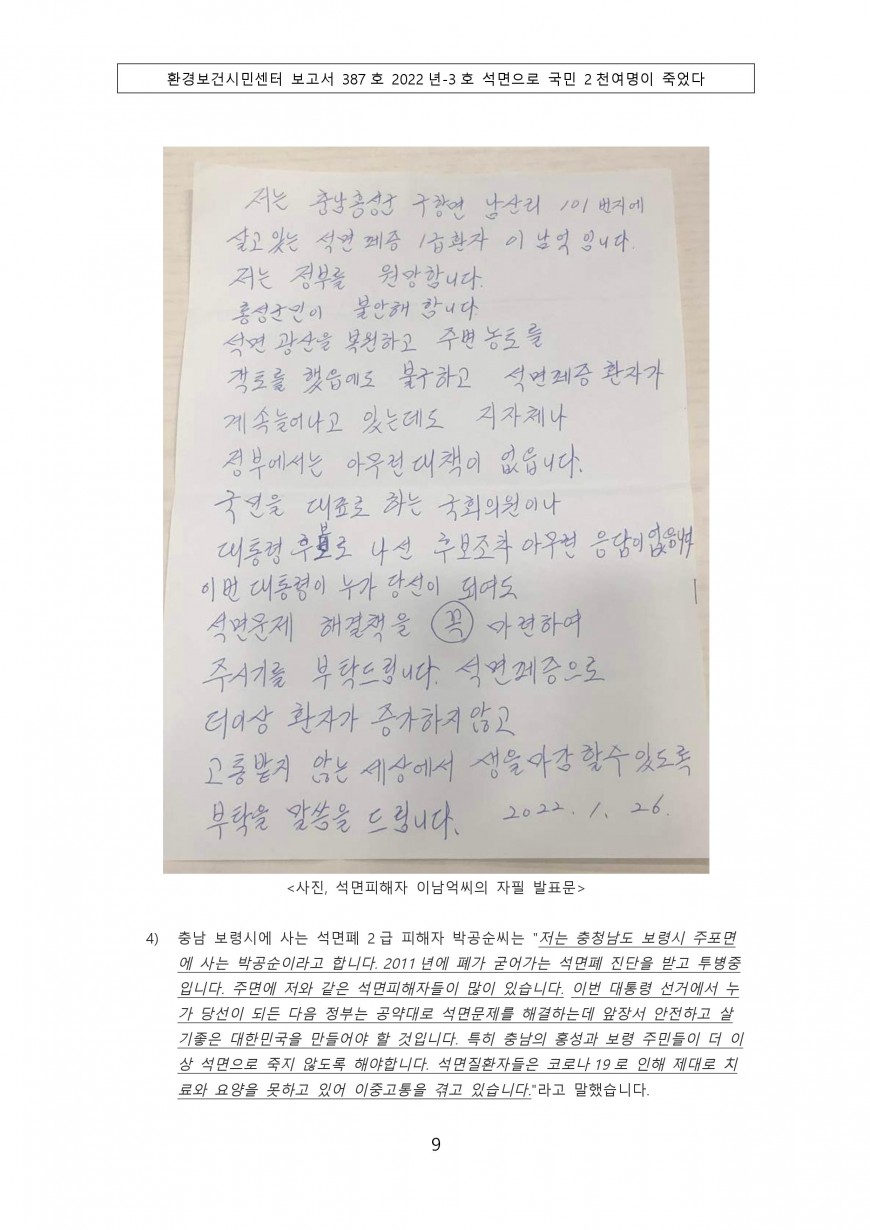 환경보건시민센터 보고서 387호 2022년-3호 석면으로 국민 2천여명이 죽었다
저는 충남홍성군 구항면 남산리 101번지에
살고 있는 석면폐증 1급환자 이남억 입니다.
저는 정부를 원망합니다.
홍성군민이 불안해 합니다
석면 광산을 복원하고 주변농토를
객토를 했읍에도 불구하고 석면폐증 환자가
계속늘어나고 있는데도 지자체나
정부에서는 아무런대책이 없읍니다.
국민을 대표로 하는 국회의원이나
대통령 후보로 나선 후보조차 아무런 응답이없읍니다
이번 대통령이 누가 당선이 되여도
석면문제 해결책을 꼭 마련하여
주시기를 부탁드립니다. 석면폐증으로
더이상 환자가 증가하지않고
고통받지 않는 세상에서 생을마감할수있도록
부탁을 말씀을 드립니다. 2022. 1. 26.
<사진, 석면피해자 이남억씨의 자필 발표문>
4) 충남 보령시에 사는 석면폐 2급 피해자 박공순씨는 "저는 충청남도 보령시 주포면
에 사는 박공순이라고 합니다. 2011년에 폐가 굳어가는 석면폐 진단을 받고 투병중
입니다. 주면에 저와 같은 석면피해자들이 많이 있습니다. 이번 대통령 선거에서 누
가 당선이 되든 다음 정부는 공약대로 석면문제를 해결하는데 앞장서 안전하고 살
기좋은 대한민국을 만들어야 할 것입니다. 특히 충남의 홍성과 보령 주민들이 더 이
상 석면으로 죽지 않도록 해야합니다. 석면질환자들은 코로나19로 인해 제대로 치
료와 요양을 못하고 있어 이중고통을 겪고 있습니다."라고 말했습니다.
9